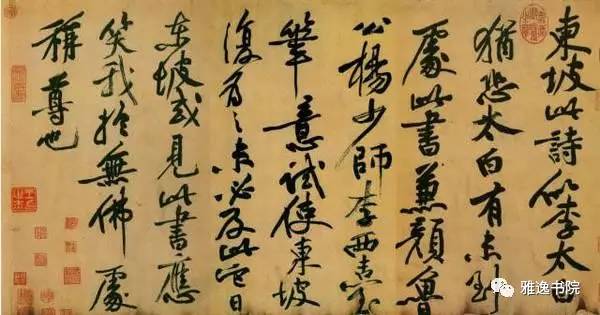 東坡此詩似李太白
猶恐太白有未到
處此書兼顏魯
公楊少師李西臺
筆意試使東坡
復為之未必及此它日
東坡或見此書應
笑我於無佛處
稱尊也
雅逸书院